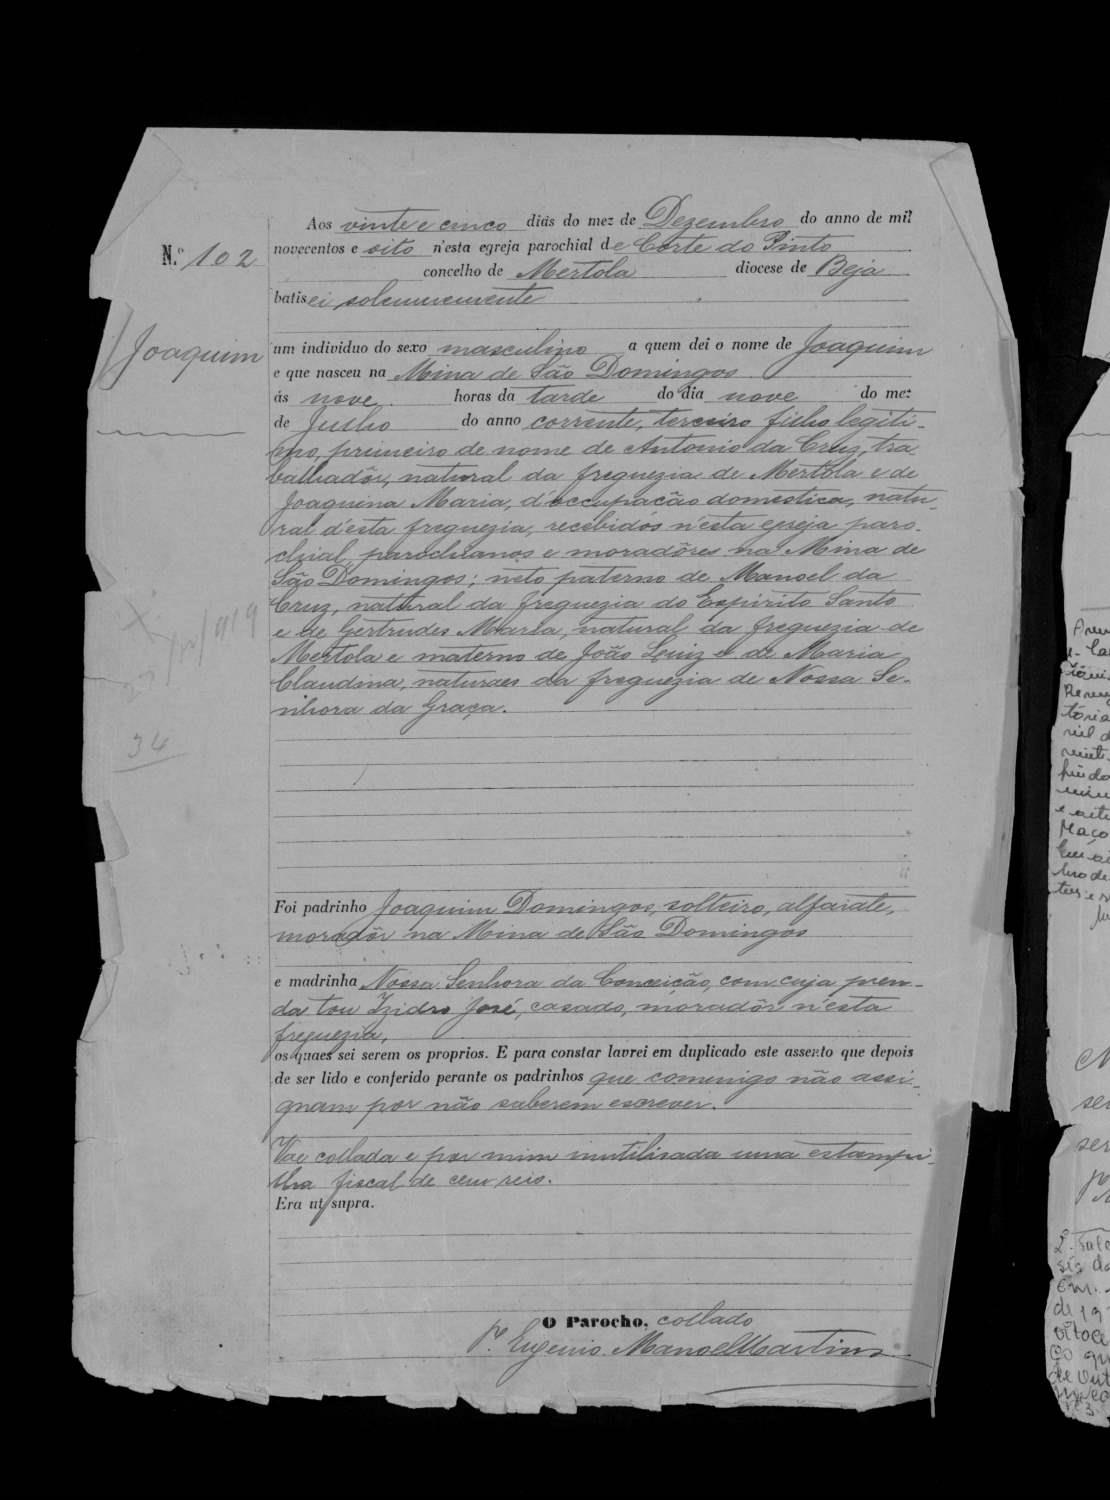 Aos vinte e cinco dias do mez de Dezembro do anno de mil
N.º 102
novecentos e oito n'esta egreja parochial de Corte do Pinto
concelho de Mertola diocese de Beja
batisei solemnemente
Joaquim
um individuo do sexo masculino a quem dei o nome de Joaquim
e que nasceu na Mina de São Domingos
ás nove horas da tarde do dia nove do mez
de Julho do anno corrente, terceiro filho legiti-
mo, primeiro de nome de Antonio da Cruz, tra
balhadôr, natural da freguezia de Mertola e de
Joaquina Maria, d'occupação domestica, natu-
ral d'esta freguezia, recebidos n'esta egreja paro-
chial, parochianos e moradôres na Mina de
São Domingos; neto paterno de Manoel da
Cruz, natural da freguezia do Espirito Santo
e de Gertrudes Maria, natural da freguezia de
Mertola e materno de João Luiz e de Maria
Claudina, naturaes da freguezia de Nossa Se-
nhora da Graça.
34
Foi padrinho Joaquim Domingos, solteiro, alfaiate,
moradôr na Mina de São Domingos
e madrinha Nossa Senhora da Conceição, com cuja pren-
da tou Izidro José, casado, moradôr n'esta
freguezia,
os quaes sei serem os proprios. E para constar lavrei em duplicado este assento que depois
de ser lido e conferido perante os padrinhos que comemigo não assi-
gnam por não saberem escrever.
Vae collada e por mim inutilisada uma estampi-
lha fiscal de cem reis.
Era ut supra.
O Parocho, collado
P.e Eugenio Manoel Martins